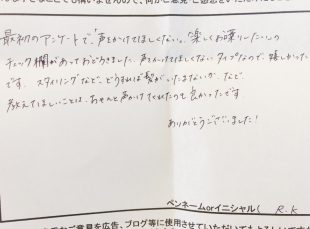 最初のアンケートで、「声をかけてほしくない」、「楽しくお喋りしたい」の
チェック欄があっておどろきました。声をかけてほしくないタイプなので、嬉しかった
です。スタイリングなど、どうすれば髪がいたまないか、など
教えてほしいことは、ちゃんと声かけてくれたのも良かったです
ありがとうございました!
ペンネームorイニシャル( R.K
ご意見を広告、ブログ等に使用させていただいてもよろしいですか